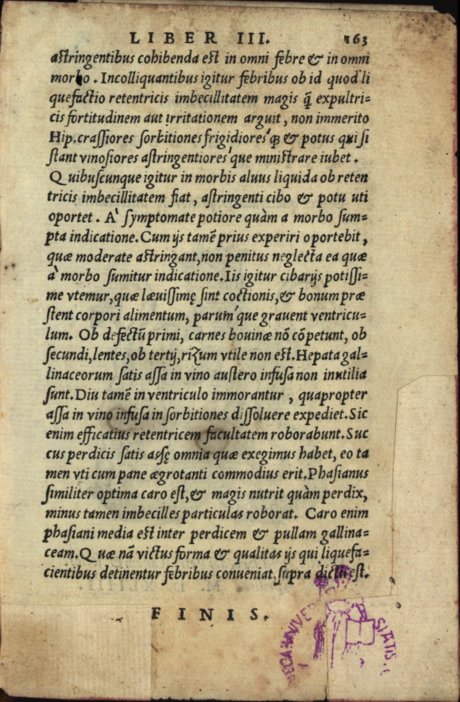 LIBER III. 163
astringentibus cohibenda est in omni febre & in omni
morbo. Incolliquantibus igitur febribus ob id quod li
quefactio retentricis imbecillitatem magis q̃ expultri-
cis fortitudinem aut irritationem arguit, non immerito
Hip. crassiores sorbitiones frigidiores'q; & potus qui si
stant vinosiores astringentiores'que ministrare iubet.
Quibuscunque igitur in morbis aluus liquida ob reten
tricis imbecillitatem fiat, astringenti cibo & potu uti
oportet. A' symptomate potiore quàm a morbo sum-
pta indicatione. Cum ijs tamẽ prius experiri oportebit,
quæ moderate astringant, non penitus neglecta ea quæ
a' morbo sumitur indicatione. Iis igitur cibarijs potissi-
me vtemur, quæ læuissimę sint coctionis, & bonum præ
stent corpori alimentum, parum'que grauent ventricu-
lum. Ob defectũ primi, carnes bouinæ nõ cõpetunt, ob
secundi, lentes, ob tertij, riʒum vtile non est. Hepata gal-
linaceorum satis assa in vino austero infusa non inutilia
sunt. Diu tamẽ in ventriculo immorantur, quapropter
assa in vino infusa in sorbitiones dissoluere expediet. Sic
enim efficatius retentricem facultatem roborabunt. Suc
cus perdicis satis assę omnia quæ exegimus habet, eo ta
men vti cum pane ægrotanti commodius erit. Phasianus
similiter optima caro est, & magis nutrit quàm perdix,
minus tamen imbecilles particulas roborat. Caro enim
phasiani media est inter perdicem & pullam gallina-
ceam. Quæ nã victus forma & qualitas ijs qui liquefa-
cientibus detinentur febribus conueniat, supra dictũ est.
FINIS.